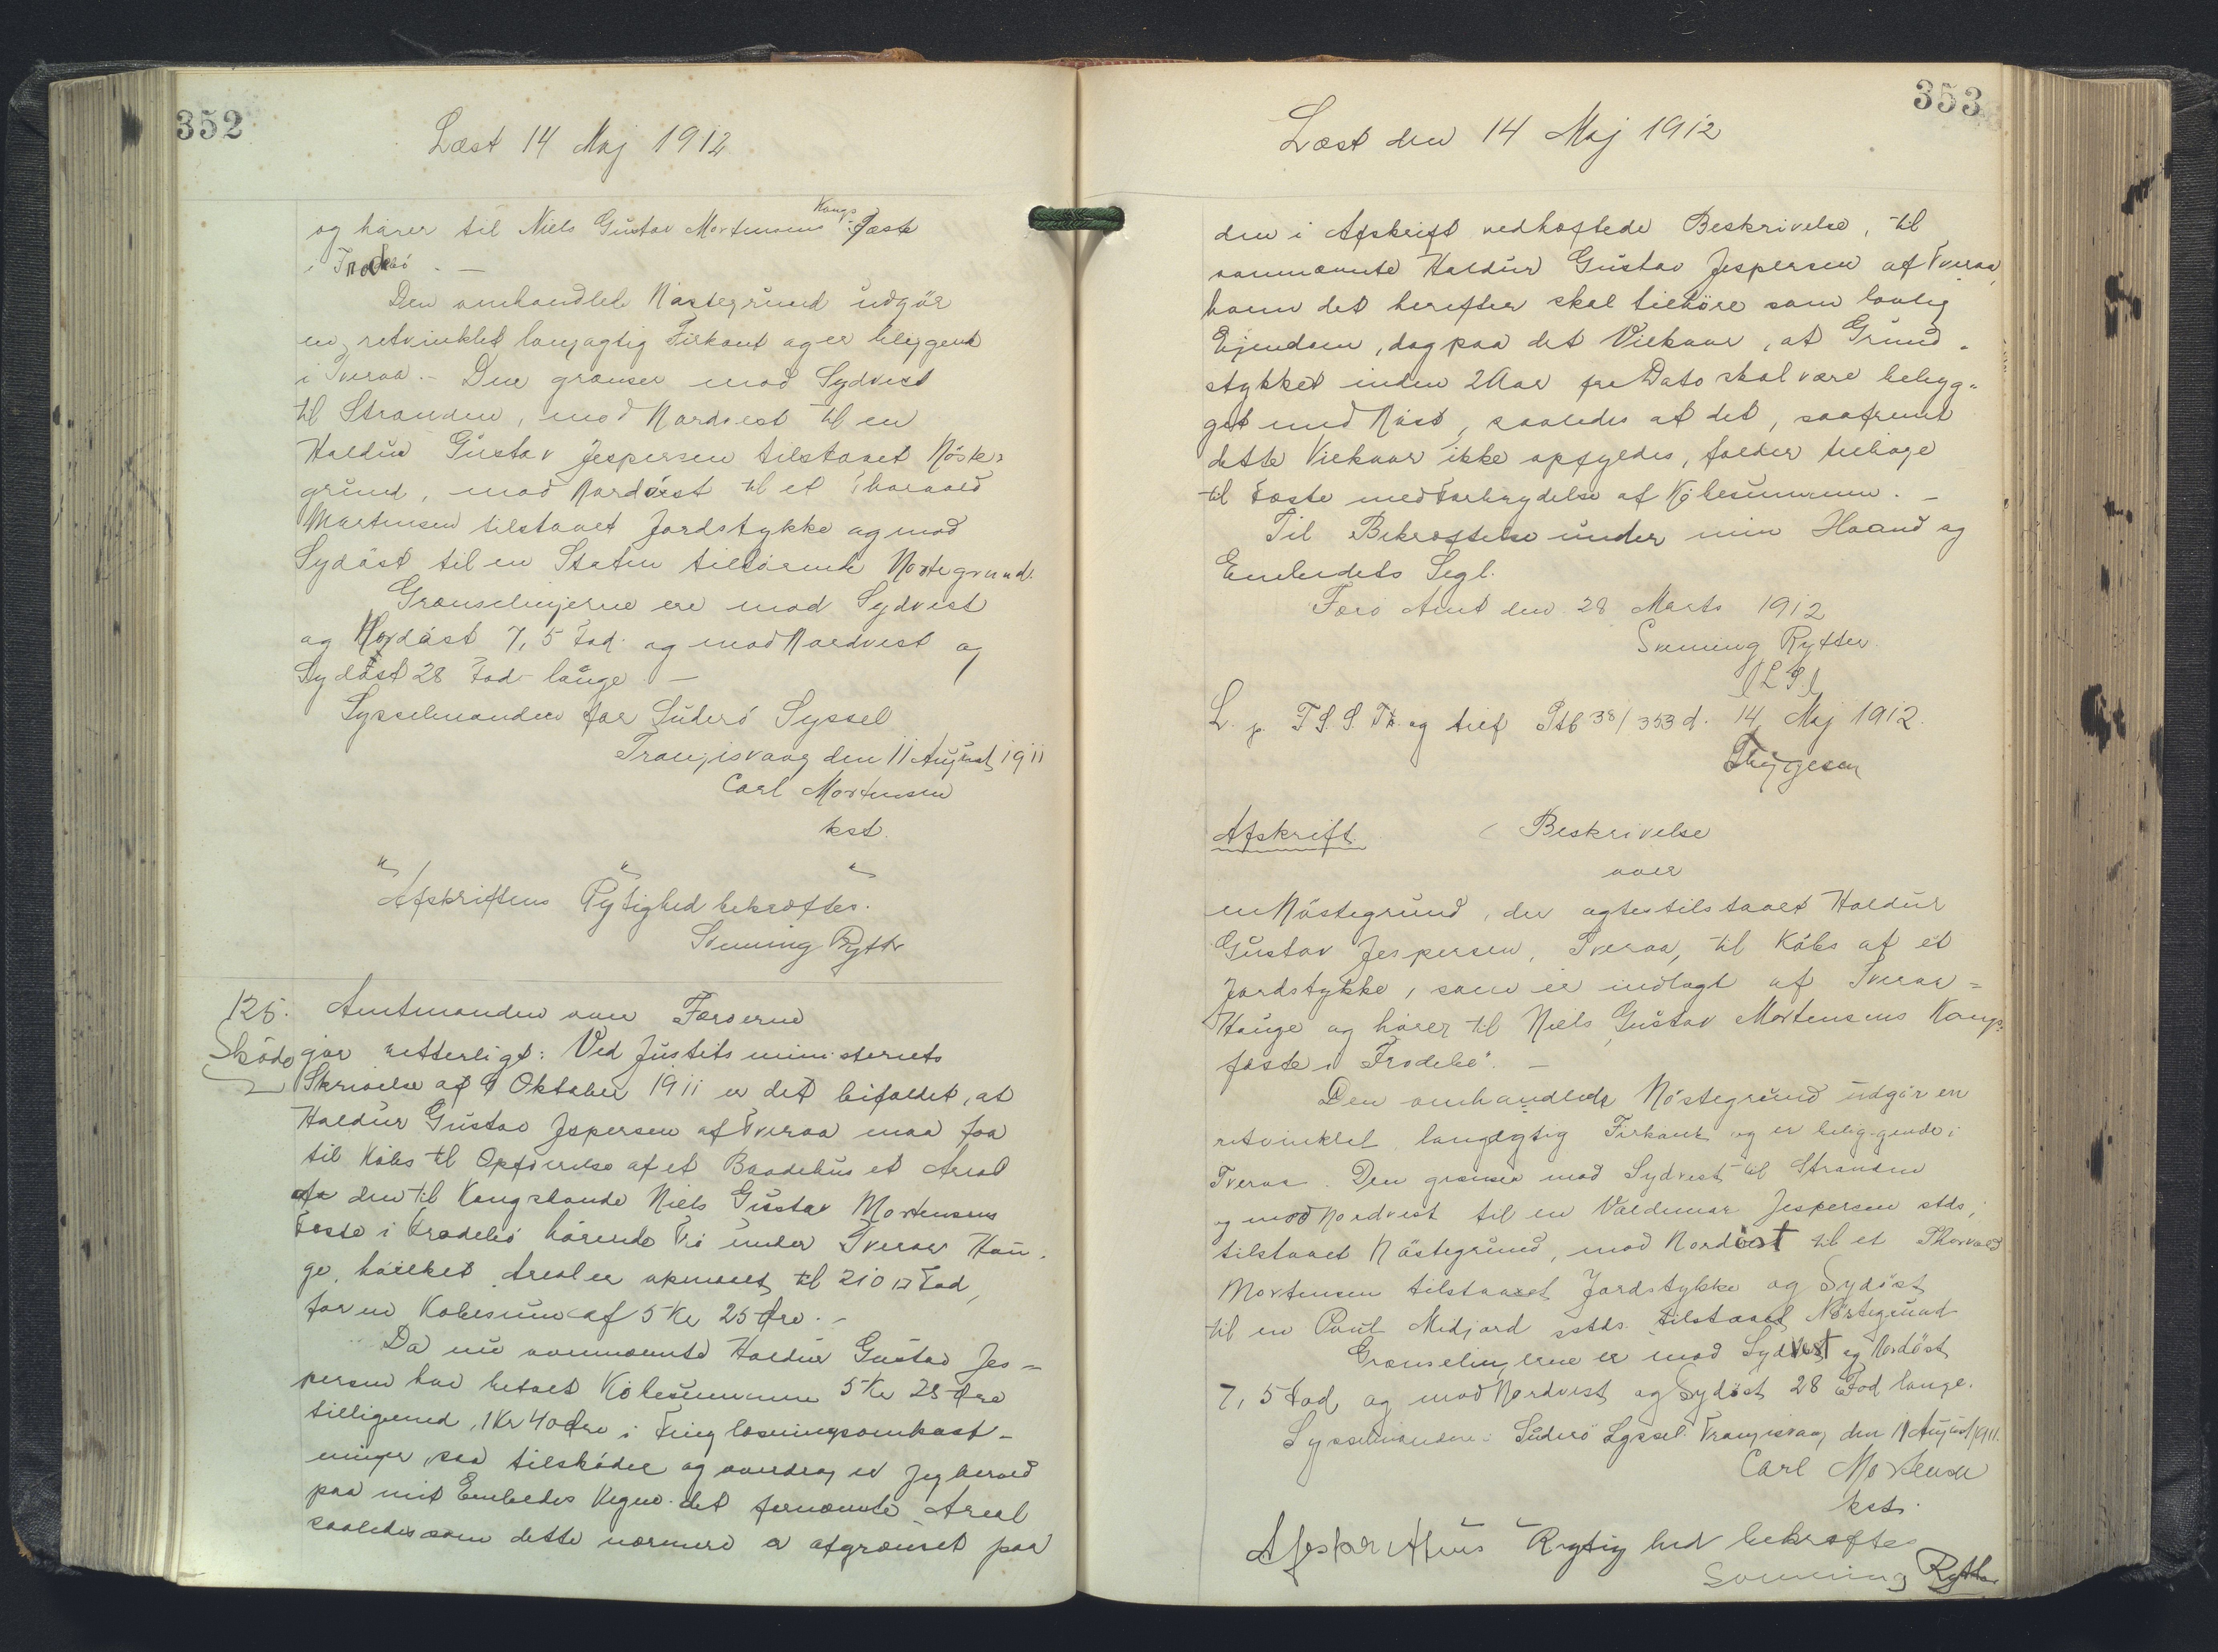 352
Læst 14 Maj 1912
og hører til Niels Gustav Mortensens Kongs-Fæste
i Frodebø. —
Den omhandlede Nøstegrund udgör
en retvinklet langagtig Firkant og er beliggende
i Tveraa. – Den grænser mod Sydvest
til Stranden, mod Nordvest til en
Haldur Gustav Jespersen tilstaaet Nöste-
grund, mod Nordöst til et Thorvald
Mortensen tilstaaet Jordstykke og mod
Sydöst til en Staten tilhörende Nöstegrund.
Grænselinjerne ere mod Sydvest
og Nordöst 7,5 Fod og mod Nordvest og
Sydöst 28 Fod lange. —
Sysselmanden for Suderö Syssel
Trangisvaag den 11 August 1911
Carl Mortensen
kst.
" " "
Afskriftens Rigtighed bekræftes.
Svenning Rytter
125. Amtmanden over Færöerne
Sköde gör vitterligt: Ved Justitsministeriets
Skrivelse af 9 Oktober 1911 er det bifaldet, at
Haldur Gustav Jespersen af Tveraa maa faa
til Köbs til Opförelse af et Baadehus et Areal
fra den til Kongsbonde Niels Gustav Mortensens
Fæste i Frodebö hörende Trö under Tveraa Hau-
ge, hvilket Areal er opmaalt til 210 □ Fod,
for en Købesum af 5 Kr 25 Øre. –
Da nu ovennævnte Haldur Gustav Jes-
persen har betalt Köbesummen 5 Kr 25 Øre
tilligemed 1 Kr 40 Øre i Tinglæsningsomkost-
ninger, saa tilsköder og overdrager Jeg herved
paa mit Embedes Vegne det fornævnte Areal
saaledes som dette nærmere er afgrænset paa
353
Læst den 14 Maj 1912
den i Afskrift vedhæftede Beskrivelse, til
ovennævnte Haldur Gustav Jespersen af Tveraa,
hvem det herefter skal tilhöre som lovlig
Ejendom, dog paa det Vilkaar, at Grund-
stykket inden 2 Aar fra Dato skal være bebyg-
get med Nöst, saaledes at det, saafremt
dette Vilkaar ikke opfyldes, falder tilbage
til Fæste med Forbrydelse af Köbesummen. —
Til Bekræftelse under min Haand og
Embedets Segl.
Færö Amt den 28 Marts 1912
Svenning Rytter
(L.S.)
L. p. F S. S. Th. og tilf Ptb 38/353 d. 14 Maj 1912.
Thygesen
Afskrift Beskrivelse
over
en Nöstegrund, der agtes tilstaaet Haldur
Gustav Jespersen, Tveraa, til Köbs af et
Jordstykke, som er indtagt af Tveraa=
Hauge og hörer til Niels Gustav Mortensens Kongs-
fæste i Frodebö. —
Den omhandlede Nöstegrund udgör en
retvinklet langagtig Firkant og er beliggende i
Tveraa. Den grænser mod Sydvest til Stranden
og mod Nordvest til en Valdemar Jespersen stds,
tilstaaet Nöstegrund, mod Nordöst til et Thorvald
Mortensen tilstaaet Jordstykke og Sydöst
til en Poul Midjord sstds. tilstaaet Nöstegrund
Grænselinjerne er mod Sydvest og Nordöst
7,5 Fod og mod Nordvest og Sydöst 28 Fod lange.
Sysselmanden i Suderö Syssel. Trangisvaag den 11 August 1911.
Carl Mortensen
kst.
Afskriftens Rigtighed bekræftes
Svenning Rytter